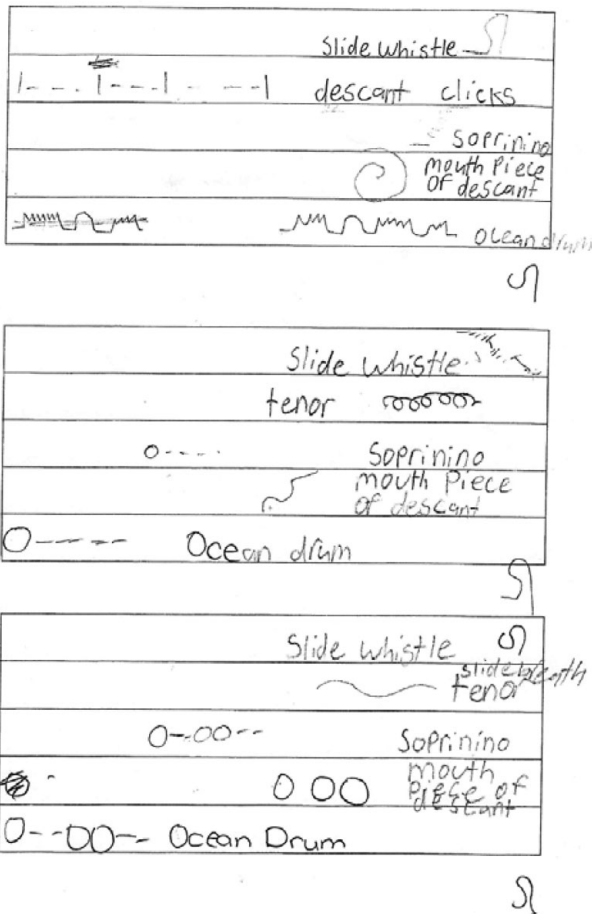 Slide whistle
descant clicks
Soprinino
mouth Piece
of descant
ocean drum
Slide whistle
tenor
Soprinino
mouth Piece
of descant
Ocean drum
Slide whistle
slide
tenor
Soprinino
mouth
piece of
descant
Ocean Drum